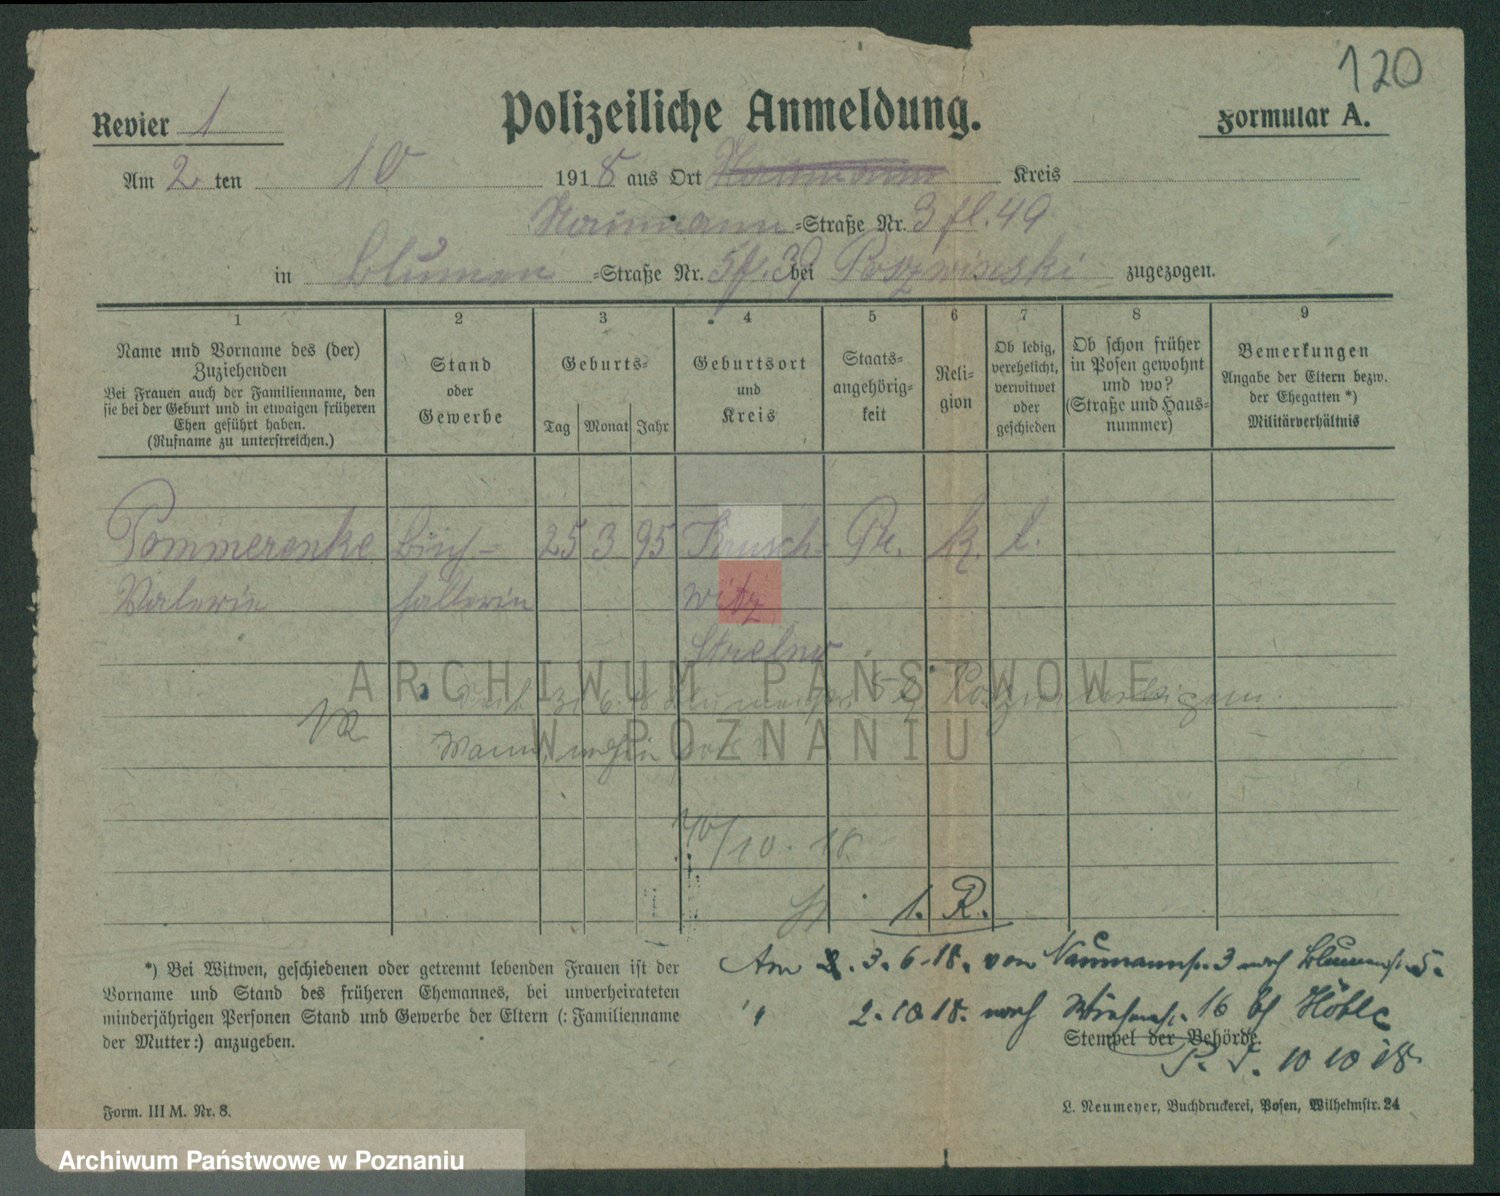 120
Polizeiliche Anmeldung.
Revier 1
Formular A.
Am 2 ten 10 1918 aus Ort Kreis
Naumann-Straße Nr. 3 fl. 49
in Blumen-Straße Nr. 5 bei zugezogen.
1 2 3 4 5 6 7 8 9
Name und Vorname des (der) Zuziehenden
Bei Frauen auch der Familienname, den
sie bei der Geburt und in etwaigen früheren
Ehen geführt haben.
(Rufname zu unterstreichen.)
Stand
oder
Gewerbe
Geburts-
Tag Monat Jahr
Geburtsort
und
Kreis
Staats-
angehörig-
keit
Reli-
gion
Ob ledig,
verehelicht,
verwitwet
oder
geschieden
Ob schon früher
in Posen gewohnt
und wo?
(Straße und Haus-
nummer)
Bemerkungen
Angabe der Eltern bezw.
der Ehegatten *)
Militärverhältnis
Pommerenke Buch- 25 3 95 Krusch- Pr. k. l.
Valerie halterin witz
Strelno
ARCHIWUM PAŃSTWOWE
W POZNANIU
10/10. 18
1. R.
*) Bei Witwen, geschiedenen oder getrennt lebenden Frauen ist der
Vorname und Stand des früheren Ehemannes, bei unverheirateten
minderjährigen Personen Stand und Gewerbe der Eltern (: Familienname
der Mutter:) anzugeben.
Am 3. 6. 18. von Naumannstr. 3 nach Blumenstr. 5.
" 2. 10 18. nach 16 bei
Stempel der Behörde.
10 10 18
Form. III M. Nr. 8.
L. Neumeyer, Buchdruckerei, Posen, Wilhelmstr. 24
Archiwum Państwowe w Poznaniu